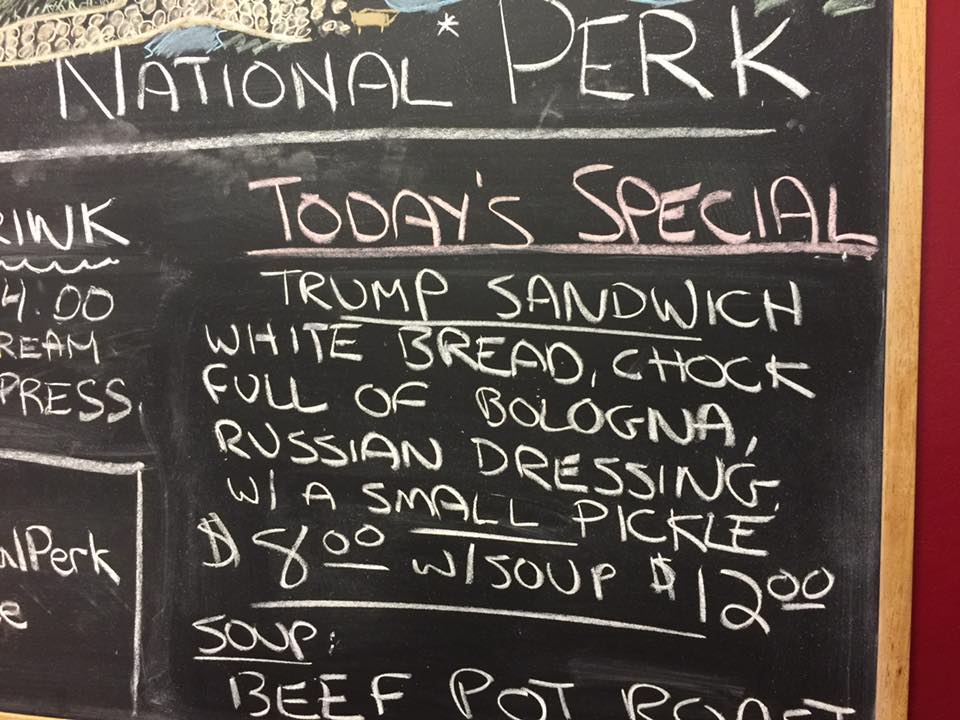 NATIONAL* PERK
TODAY'S SPECIAL
TRUMP SANDWICH
WHITE BREAD, CHOCK
FULL OF BOLOGNA,
RUSSIAN DRESSING,
W/ A SMALL PICKLE
$8.00 W/SOUP $12.00
SOUP:
BEEF POT ROAST
RINK
4.00
REAM
PRESS.
alPerk
e